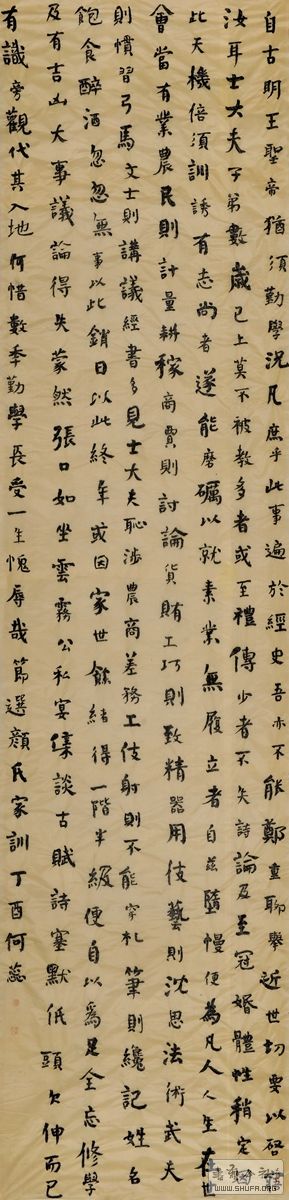 自古明王聖帝猶須勤學況凡庶乎此事遍於經史吾亦不能鄭重聊舉近世切要以啓寤
汝耳士大夫子弟數歲已上莫不被教多者或至禮傳少者不失詩論及至冠婚體性稍定因
此天機倍須訓誘有志尚者遂能磨礪以就素業無履立者自茲墮慢便為凡人人生在世
會當有業農民則計量耕稼商賈則討論貨賄工巧則致精器用伎藝則沈思法術武夫
則慣習弓馬文士則講議經書多見士大夫恥涉農商差務工伎射則不能穿札筆則纔記姓名
飽食醉酒忽忽無事以此銷日以此終年或因家世餘緒得一階半級便自以為足全忘修學
及有吉凶大事議論得失蒙然張口如坐雲霧公私宴集談古賦詩塞默低頭欠伸而已
有識旁觀代其入地何惜數秊勤學長受一生愧辱哉節選顏氏家訓丁酉何蕊
WWW.SHUFR.COM